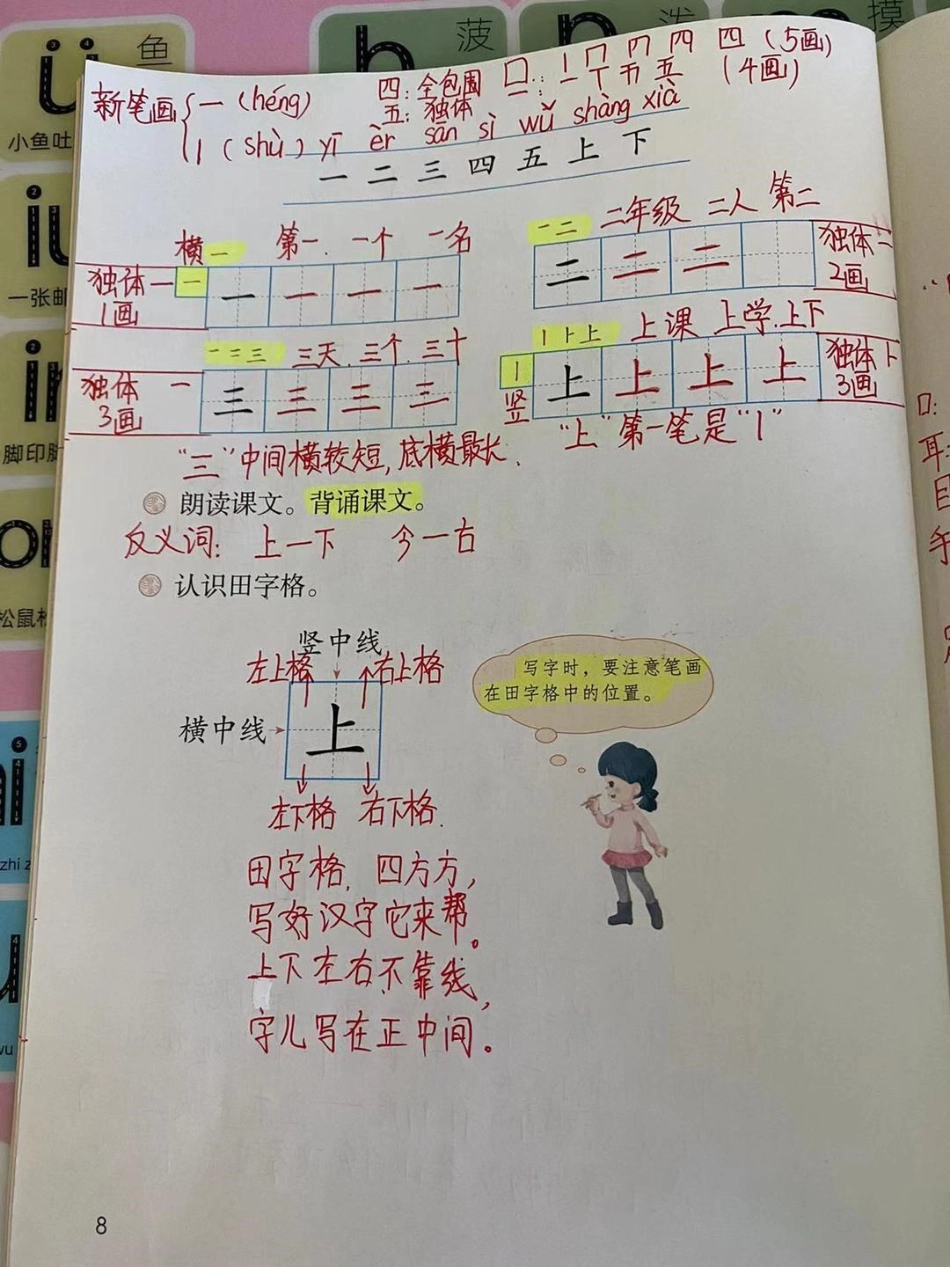 鱼 菠 泼 摸
小鱼吐
一张邮
脚印脚
松鼠松
zhi z
wu
四：全包围 囗：丨 冂 𠔿 四 四（5画）
新笔画 一（héng）
五：独体 一：一 丅 五 五（4画）
丨（shù） yī èr sān sì wǔ shàng xià
一 二 三 四 五 上 下
横一 第一、一个 一名
一二 二年级 二人 第二
独体 一 一 一 一 一 一
1画
二 二 二 独体 二
2画
一二三 三天、三个、三十
丨⺊上 上课 上学、上下
独体 一 三 三 三 三
3画
丨 上 上 上 上 独体 卜
竖 3画
“三”中间横较短，底横最长、
“上”第一笔是“丨”
朗读课文。背诵课文。
反义词：上—下 今—右
认识田字格。
竖中线
左上格 右上格
横中线 上
左下格 右下格
写字时，要注意笔画
在田字格中的位置。
田字格，四方方，
写好汉字它来帮。
上下左右不靠线，
字儿写在正中间。
口：
耳：
目
手
8